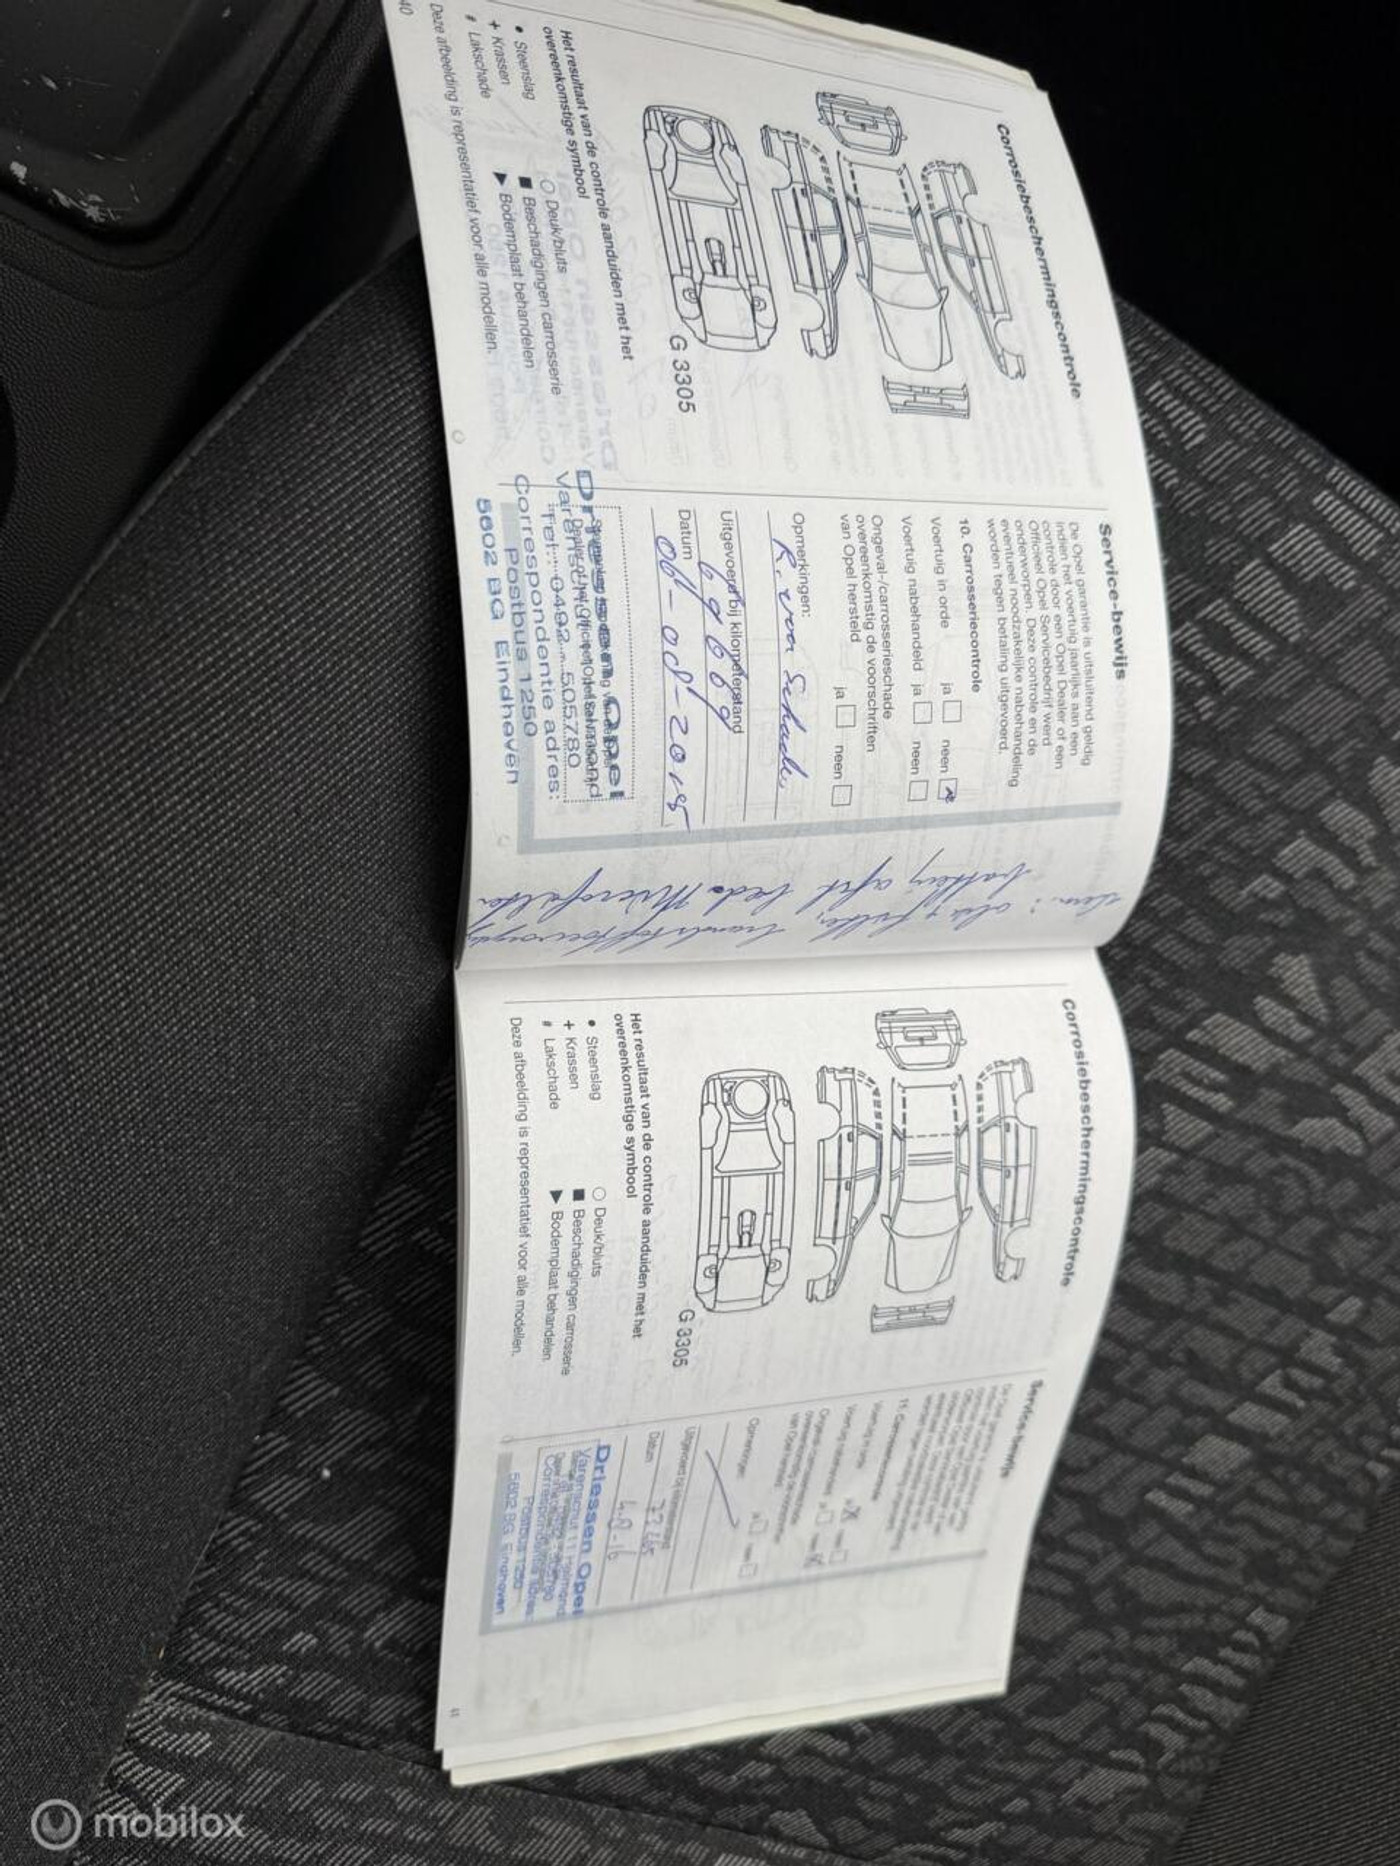 Corrosiebeschermingscontrole
G 3305
Het resultaat van de controle aanduiden met het
overeenkomstige symbool
• Steenslag
○ Deuk/bluts
+ Krassen
■ Beschadigingen carrosserie
# Lakschade
▶ Bodemplaat behandelen
Deze afbeelding is representatief voor alle modellen.
40
Service-bewijs
De Opel garantie is uitsluitend geldig
indien het voertuig jaarlijks aan een
controle door een Opel Dealer of een
Officieel Opel Servicebedrijf werd
onderworpen. Deze controle en de
eventueel noodzakelijke nabehandeling
worden tegen betaling uitgevoerd.
10. Carrosseriecontrole
Voertuig in orde ja neen
Voertuig nabehandeld ja neen
Ongeval-/carrosserieschade
overeenkomstig de voorschriften
van Opel hersteld ja neen
Opmerkingen:
R. voor Schade
Uitgevoerd bij kilometerstand
69669
Datum
06-08-2015
Driessen Opel
Tel.: 0492 - 505780
Correspondentie adres:
Postbus 1250
5602 BG Eindhoven
Corrosiebeschermingscontrole
G 3305
Het resultaat van de controle aanduiden met het
overeenkomstige symbool
• Steenslag
○ Deuk/bluts
+ Krassen
■ Beschadigingen carrosserie
# Lakschade
▶ Bodemplaat behandelen
Deze afbeelding is representatief voor alle modellen.
41
Service-bewijs
11. Carrosseriecontrole
Voertuig in orde
Voertuig nabehandeld
van Opel hersteld
Opmerkingen:
Uitgevoerd bij kilometerstand
Datum
Driessen Opel
Varenschut 11 Helmond
Correspondentie adres:
Postbus 1250
5602 BG Eindhoven
mobilox